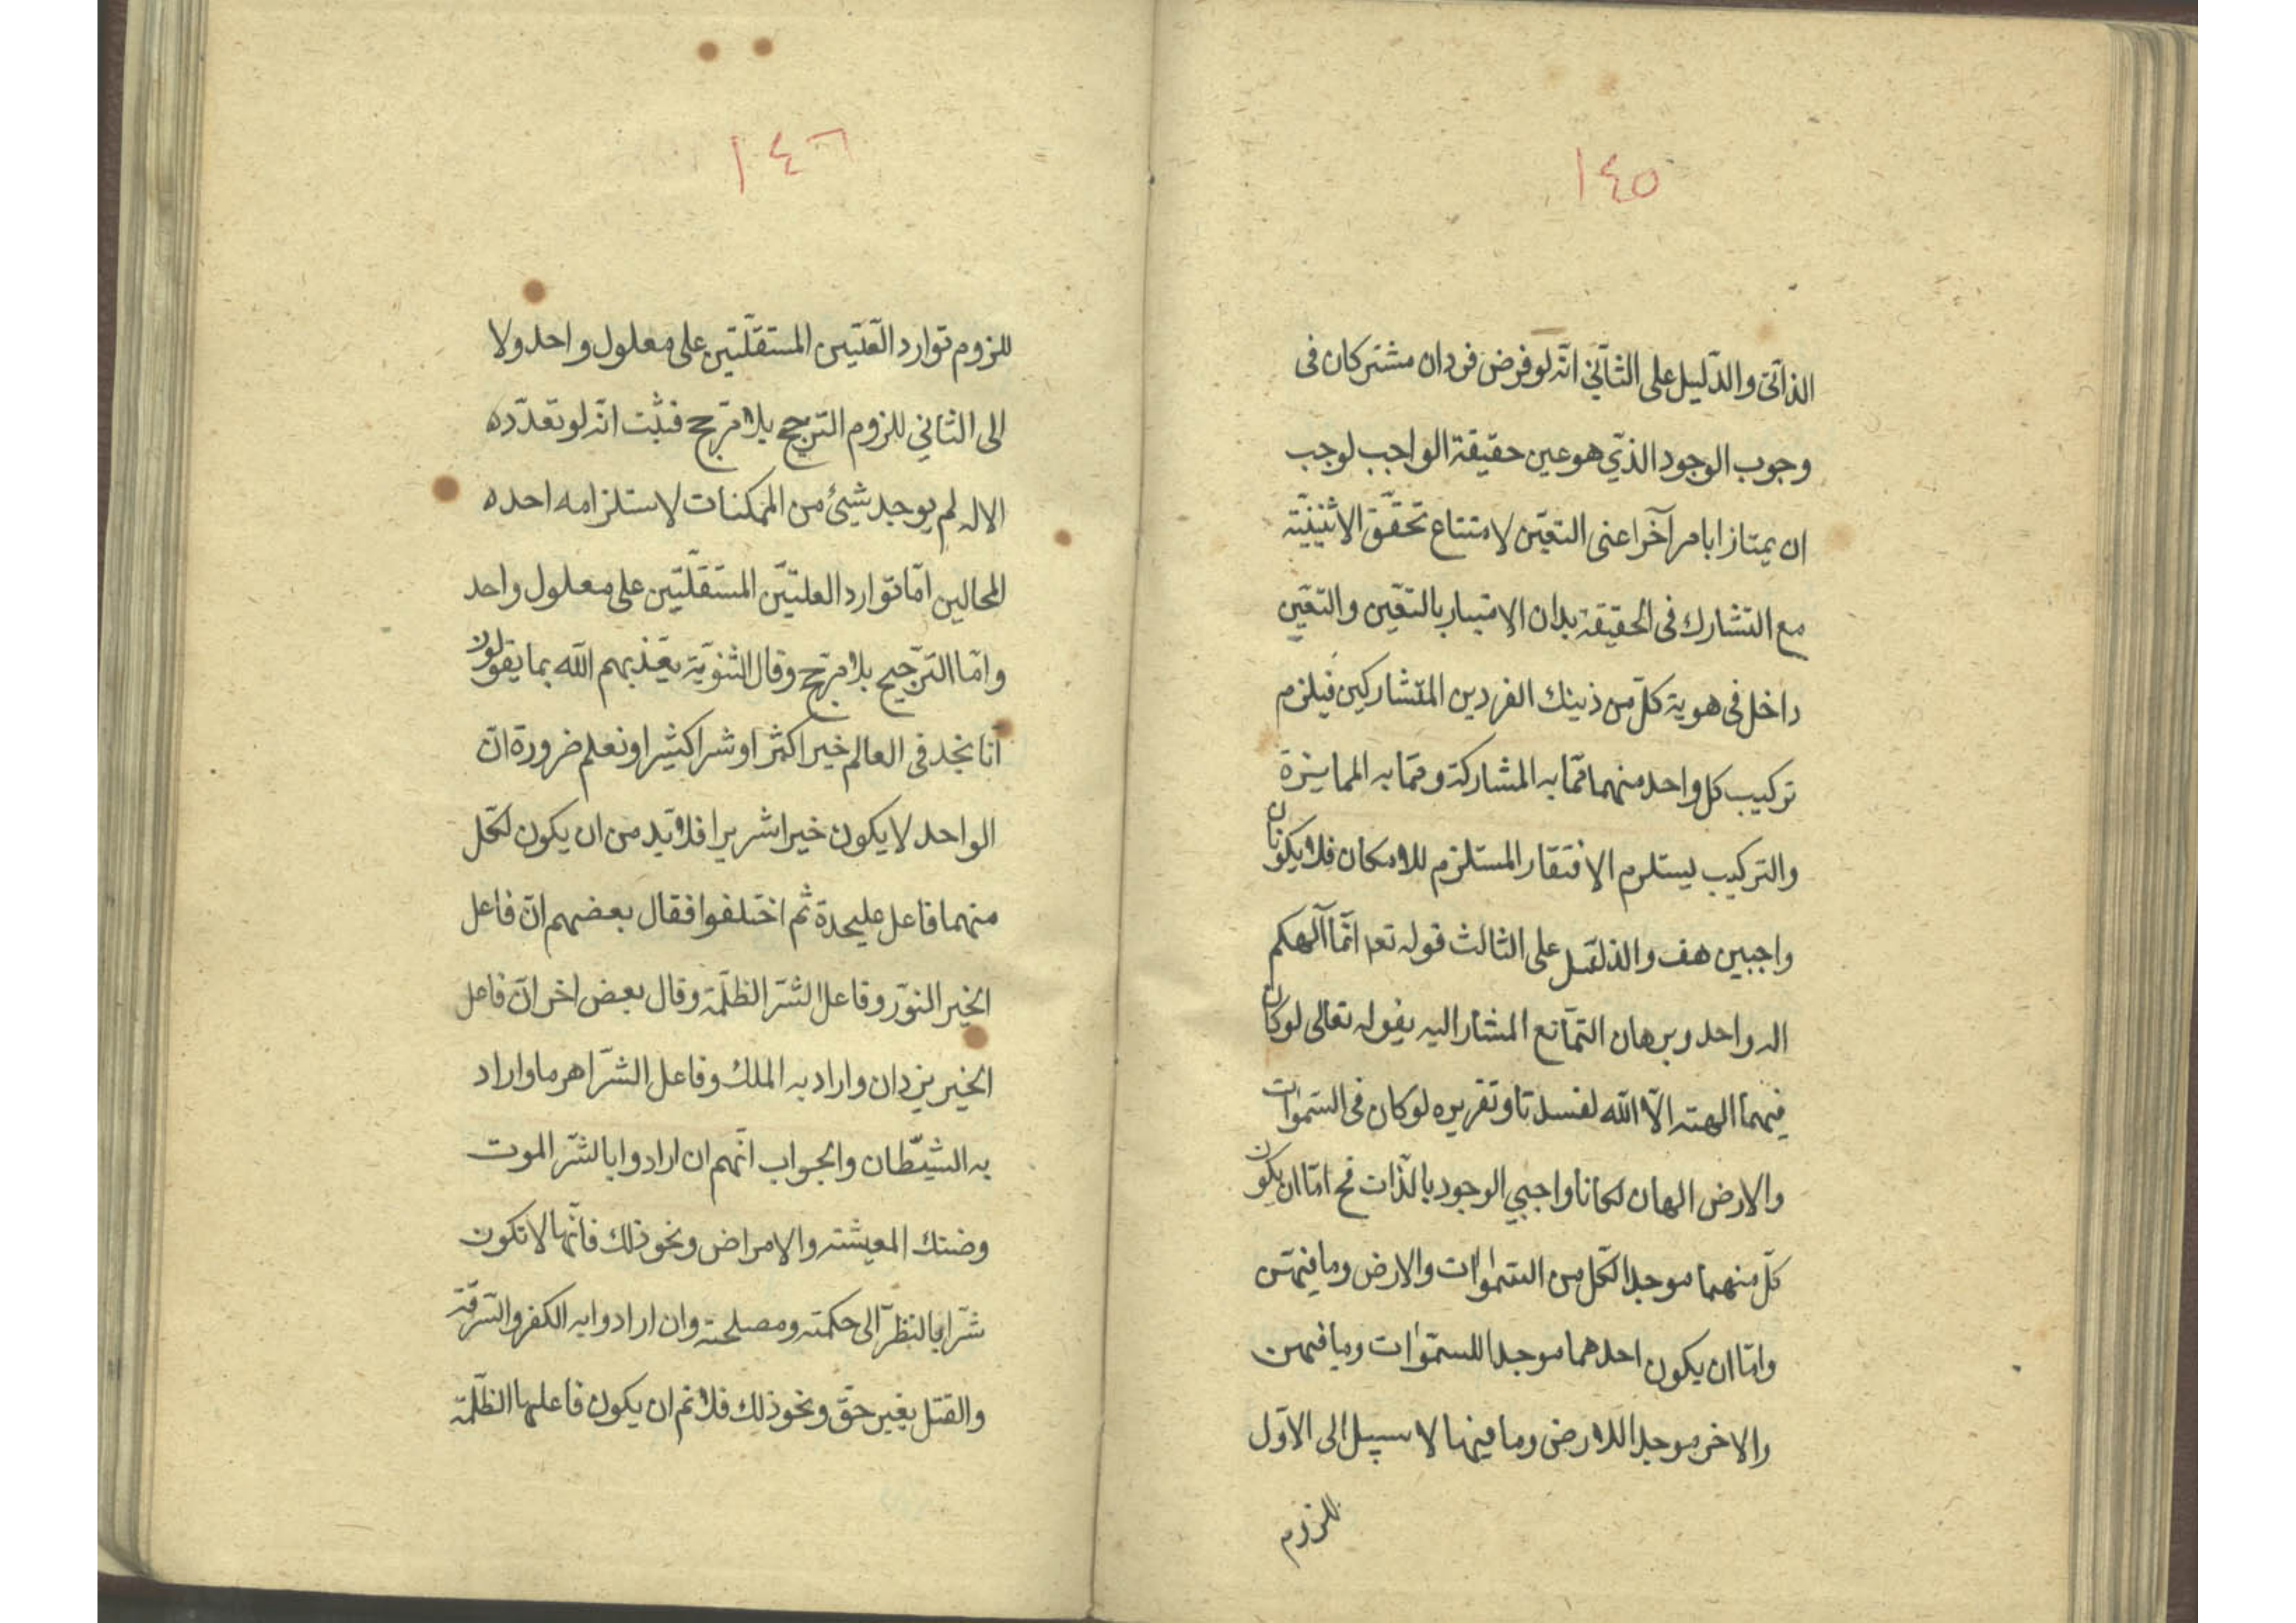 ١٤٥
الذاتى والدليل على الثانى انه لو فرض فردان مشتركان فى
وجوب الوجود الذي هو عين حقيقة الواجب لوجب
ان يمتازا بامر آخر اعنى التعين لامتناع تحقق الاثنينية
مع التشارك فى الحقيقة بدان الامتياز بالتعين والتعين
داخل فى هوية كل من ذينك الفردين المتشاركين فيلزم
تركيب كل واحد منهما ممّا به المشاركة وممّا به الممايزة
والتركيب يستلزم الافتقار المستلزم للامكان فلا يكونان
واجبين هف والدليل على الثالث قوله تعم انّما آلهكم
اله واحد وبرهان التمانع المشار اليه بقوله تعالى لو كان
فيهما الهته الّا اللّه لفسدتا وتقريره لو كان فى السموات
والارض الهان لكانا واجبي الوجود بالذات فح امّا ان يكون
كلّ منهما موجد الكلّ من السموات والارض وما فيهنّ
وامّا ان يكون احدهما موجدا للسموات وما فيهن
والاخر موجدا للارض وما فيها لا سبيل الى الاوّل
للزوم
١٤٦
للزوم توارد العلّتين المستقلّتين على معلول واحد ولا
الى الثاني للزوم الترجح بلا مرّجح فثبت انّه لو تعدّده
الاله لم يوجد شيئ من الممكنات لاستلزامه احده
المحالين امّا توارد العلتيّن المستقلّتين على معلول واحد
وامّا الترّجيح بلا مرّجح وقال الثنويّة يعّذبهم اللّه بما يقولون
انّا نجد فى العالم خيرا كثرا وشرا كثيرا ونعلم ضرورة انّ
الواحد لا يكون خيرا شريرا فلا بّد من ان يكون لكّل
منهما فاعل عليحدة ثم اختلفوا فقال بعضهم انّ فاعل
الخير النوّر وفاعل الشّر الظلّمة وقال بعض اخر انّ فاعل
الخير يزدان واراد به الملك وفاعل الشّر اهرما واراد
به الشيّطان والجواب انّهم ان ارادوا بالشّر الموت
وضنك المعيشته والامراض ونحو ذلك فانّها لا تكون
شّرا بالنظّر الى حكمته ومصلحته وان ارادوا به الكفر والسّرقة
والقتل بغير حقّ ونحو ذلك فلا نم ان يكون فاعلها الظلّمة